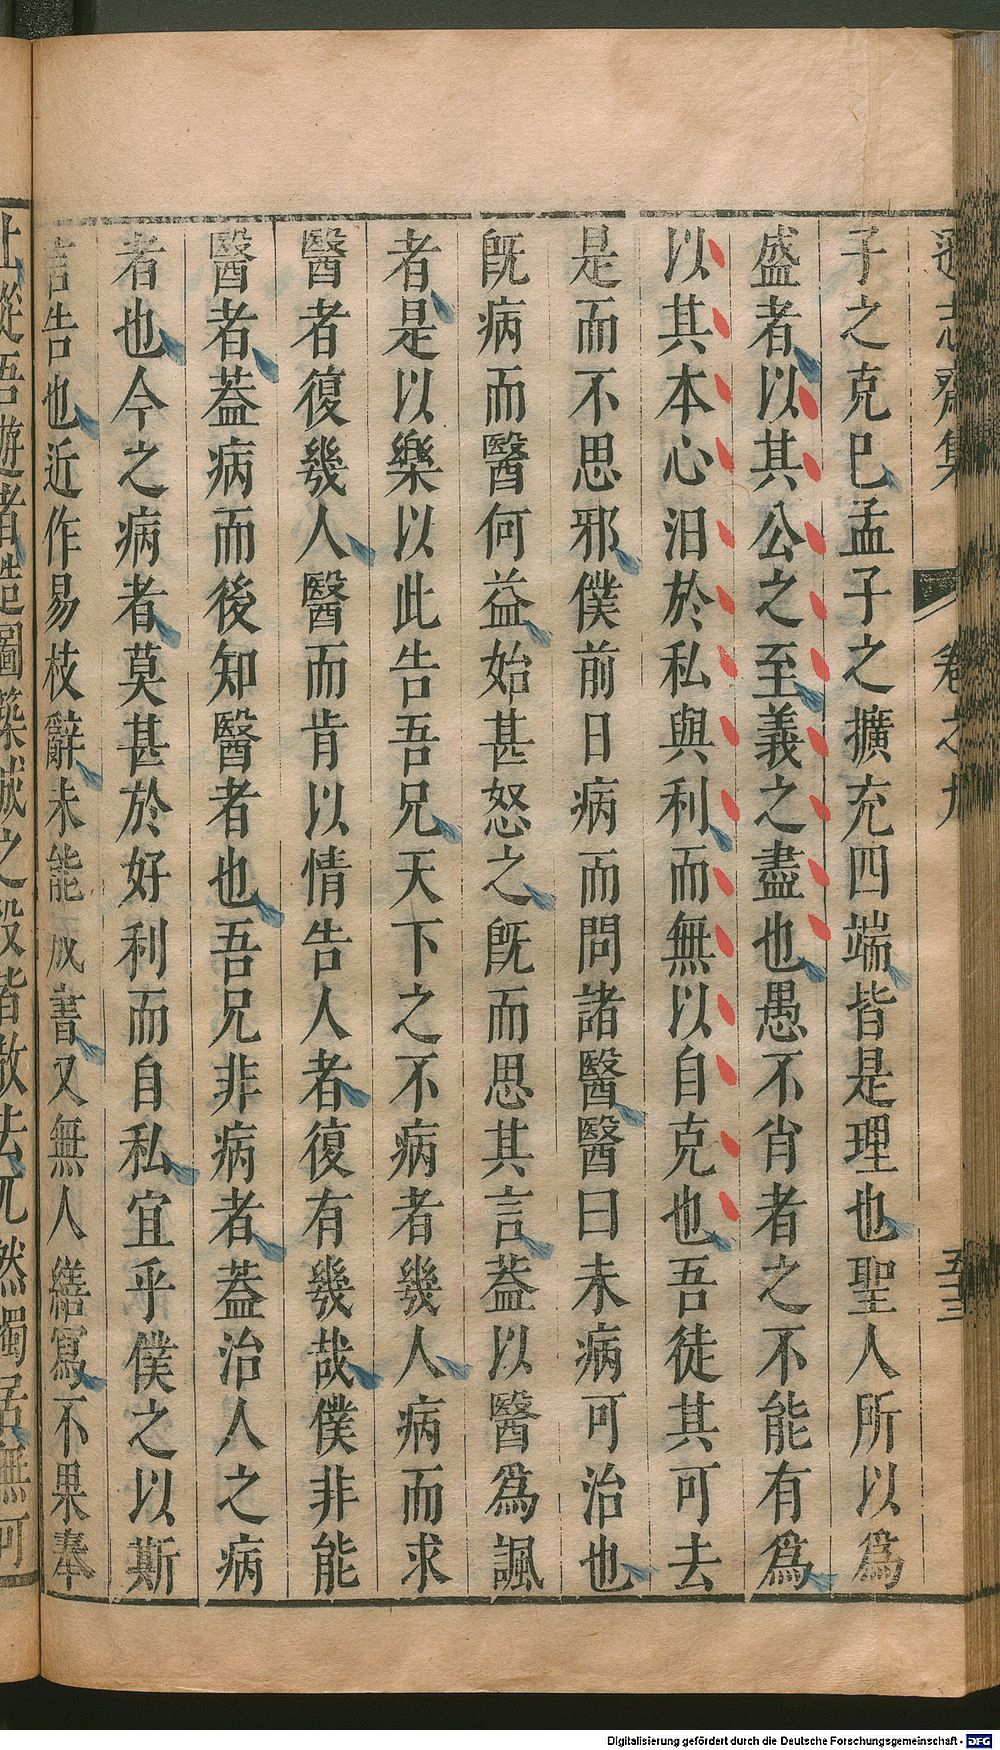 遜志齋集 卷之九 五十三
子之克已孟子之擴充四端皆是理也聖人所以爲
盛者以其公之至義之盡也愚不肖者之不能有爲
以其本心汨於私與利而無以自克也吾徒其可去
是而不思邪僕前日病而問諸醫醫曰未病可治也
旣病而醫何益始甚怒之旣而思其言葢以醫爲諷
者是以樂以此告吾兄天下之不病者幾人病而求
醫者復幾人醫而肯以情告人者復有幾哉僕非能
醫者葢病而後知醫者也吾兄非病者葢治人之病
者也今之病者莫甚於好利而自私宜乎僕之以斯
言告也近作易枝辭未能成書又無人繕寫不果奉
止從吾遊者造圖築城之役皆散去兀然獨居無可
Digitalisierung gefördert durch die Deutsche Forschungsgemeinschaft - DFG